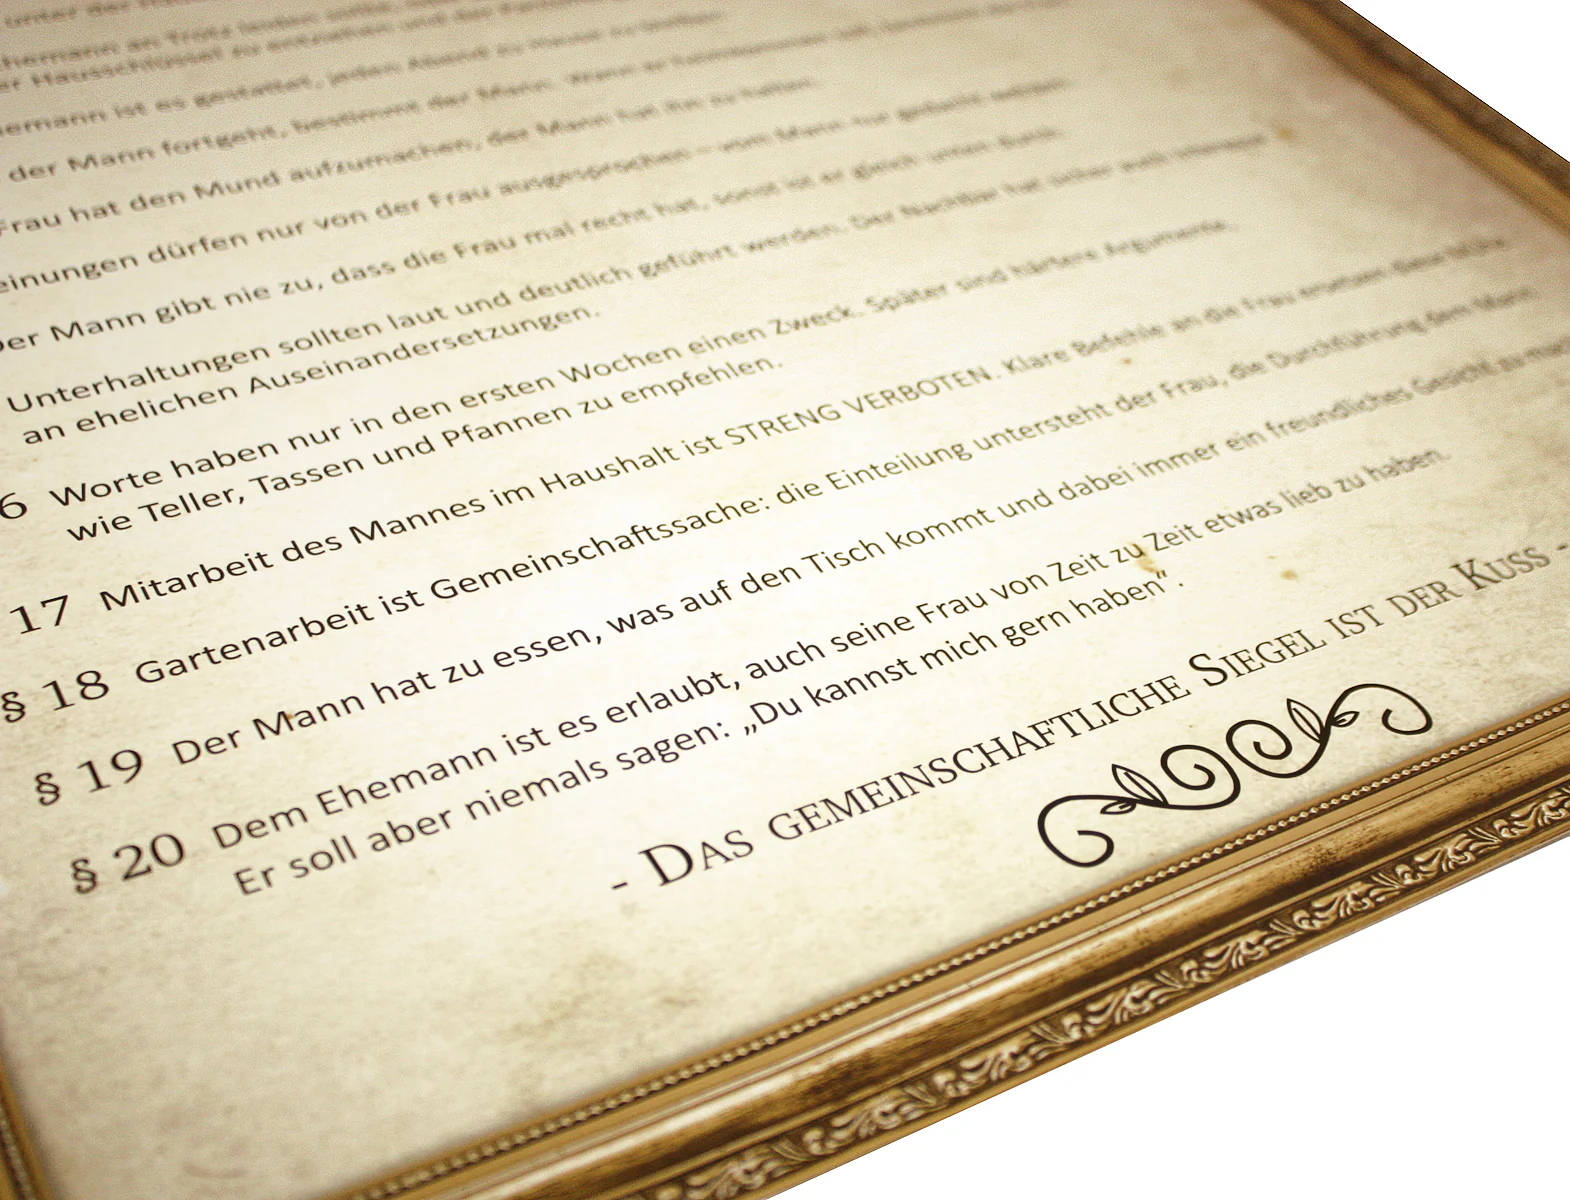 unter der
hemann an Trotz leiden sollte,
er Hausschlüssel zu entziehen und der
hemann ist es gestattet, jeden Abend zu Hause zu bleiben.
der Mann fortgeht, bestimmt der Mann. Wann er
Frau hat den Mund aufzumachen, der Mann hat ihn zu halten.
einungen dürfen nur von der Frau ausgesprochen – vom Mann nur gedacht werden.
Der Mann gibt nie zu, dass die Frau mal recht hat, sonst ist er gleich unten durch.
Unterhaltungen sollten laut und deutlich geführt werden. Der Nachbar hat sicher auch Interesse
an ehelichen Auseinandersetzungen.
6 Worte haben nur in den ersten Wochen einen Zweck. Später sind härtere Argumente,
wie Teller, Tassen und Pfannen zu empfehlen.
17 Mitarbeit des Mannes im Haushalt ist STRENG VERBOTEN. Klare Befehle an die Frau ersetzen diese Mühe.
§ 18 Gartenarbeit ist Gemeinschaftssache: die Einteilung untersteht der Frau, die Durchführung dem Mann.
§ 19 Der Mann hat zu essen, was auf den Tisch kommt und dabei immer ein freundliches Gesicht zu
§ 20 Dem Ehemann ist es erlaubt, auch seine Frau von Zeit zu Zeit etwas lieb zu haben.
Er soll aber niemals sagen: „Du kannst mich gern haben“ .
- Das gemeinschaftliche Siegel ist der Kuss -